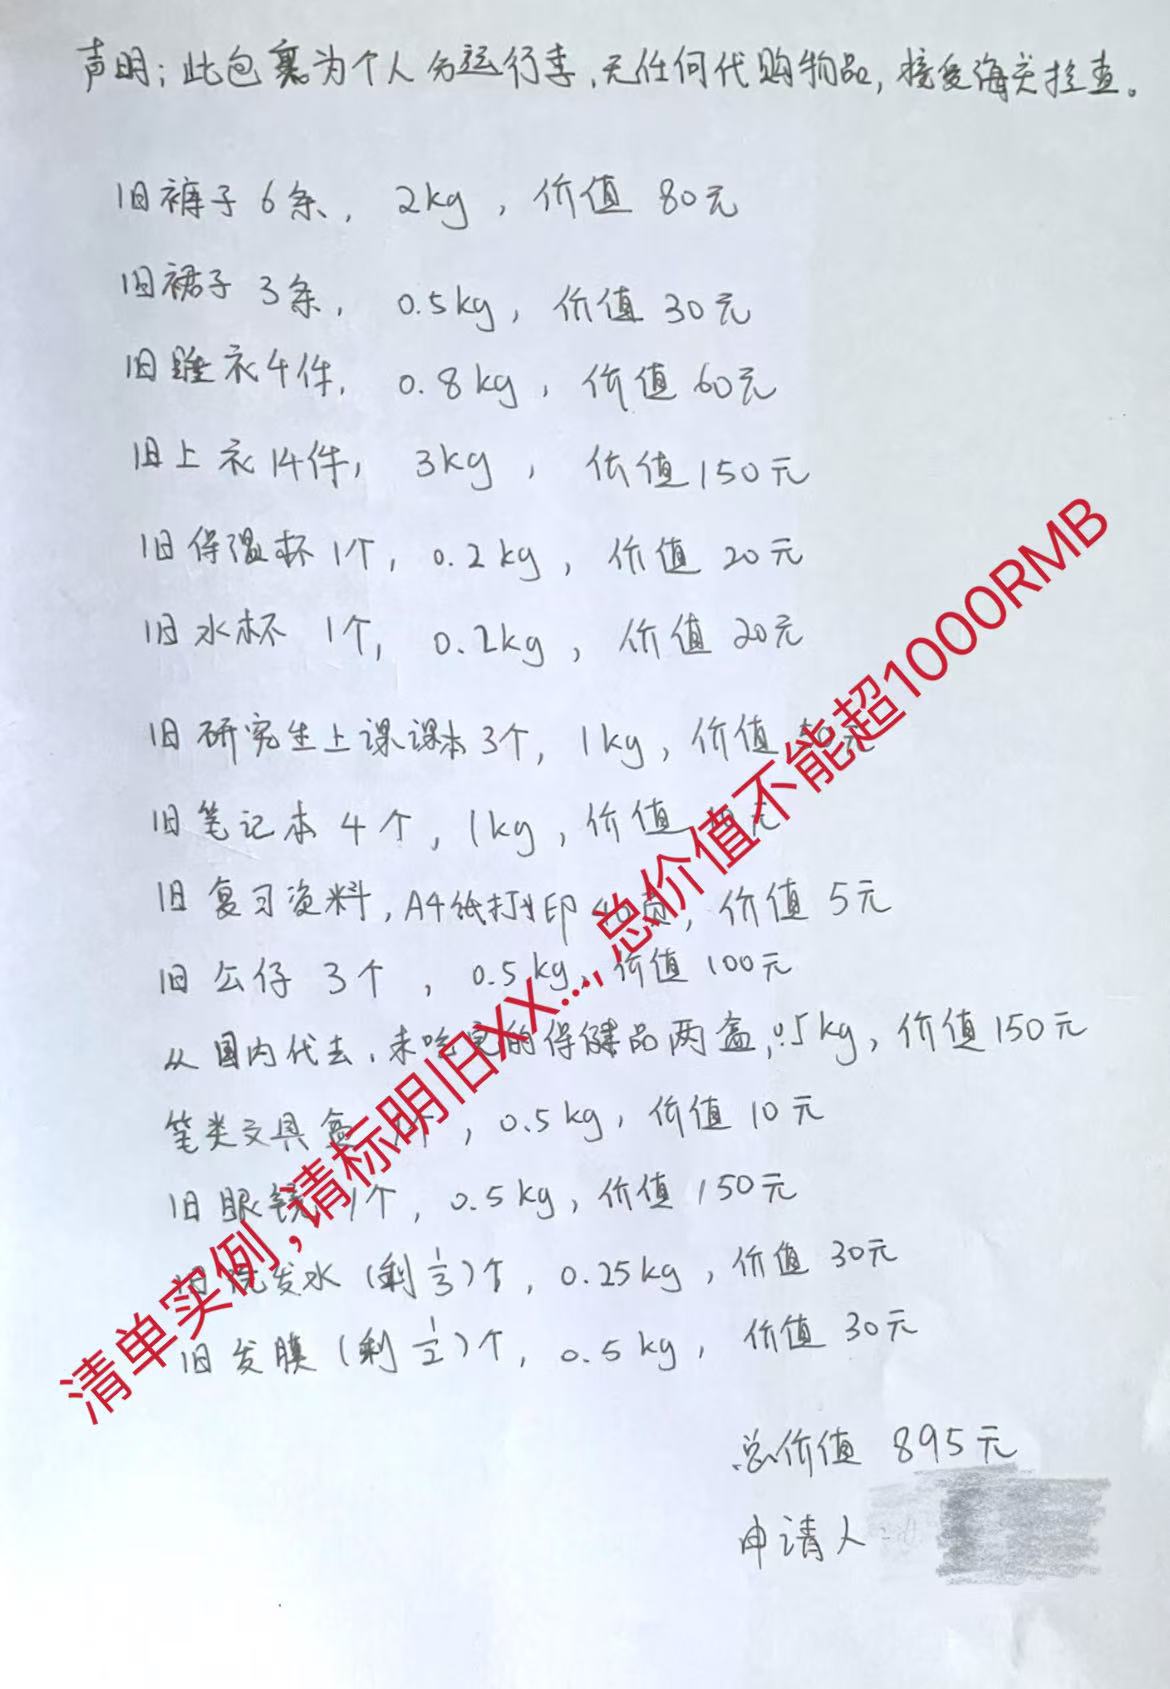 声明：此包裹为个人分运行李，无任何代购物品，接受海关检查。
旧裤子 6条， 2kg， 价值 80元
旧裙子 3条， 0.5kg， 价值 30元
旧睡衣4件， 0.8kg， 价值 60元
旧上衣14件， 3kg， 价值150元
旧保温杯1个， 0.2kg， 价值 20元
旧水杯 1个， 0.2kg， 价值 20元
旧研究生上课课本3个， 1kg， 价值 元
旧笔记本 4个， 1kg， 价值 元
旧复习资料，A4纸打印 页，价值 5元
旧公仔 3个， 0.5kg，价值 100元
从国内代去，未吃完的保健品两盒，0.5kg，价值150元
笔类文具盒 1个， 0.5kg，价值 10元
旧眼镜 1个， 0.5kg，价值 150元
旧洗发水（剩1/3）个， 0.25kg，价值 30元
旧发膜（剩1/2）个， 0.5kg， 价值 30元
总价值 895元
申请人
清单实例,请标明旧XX...,总价值不能超1000RMB